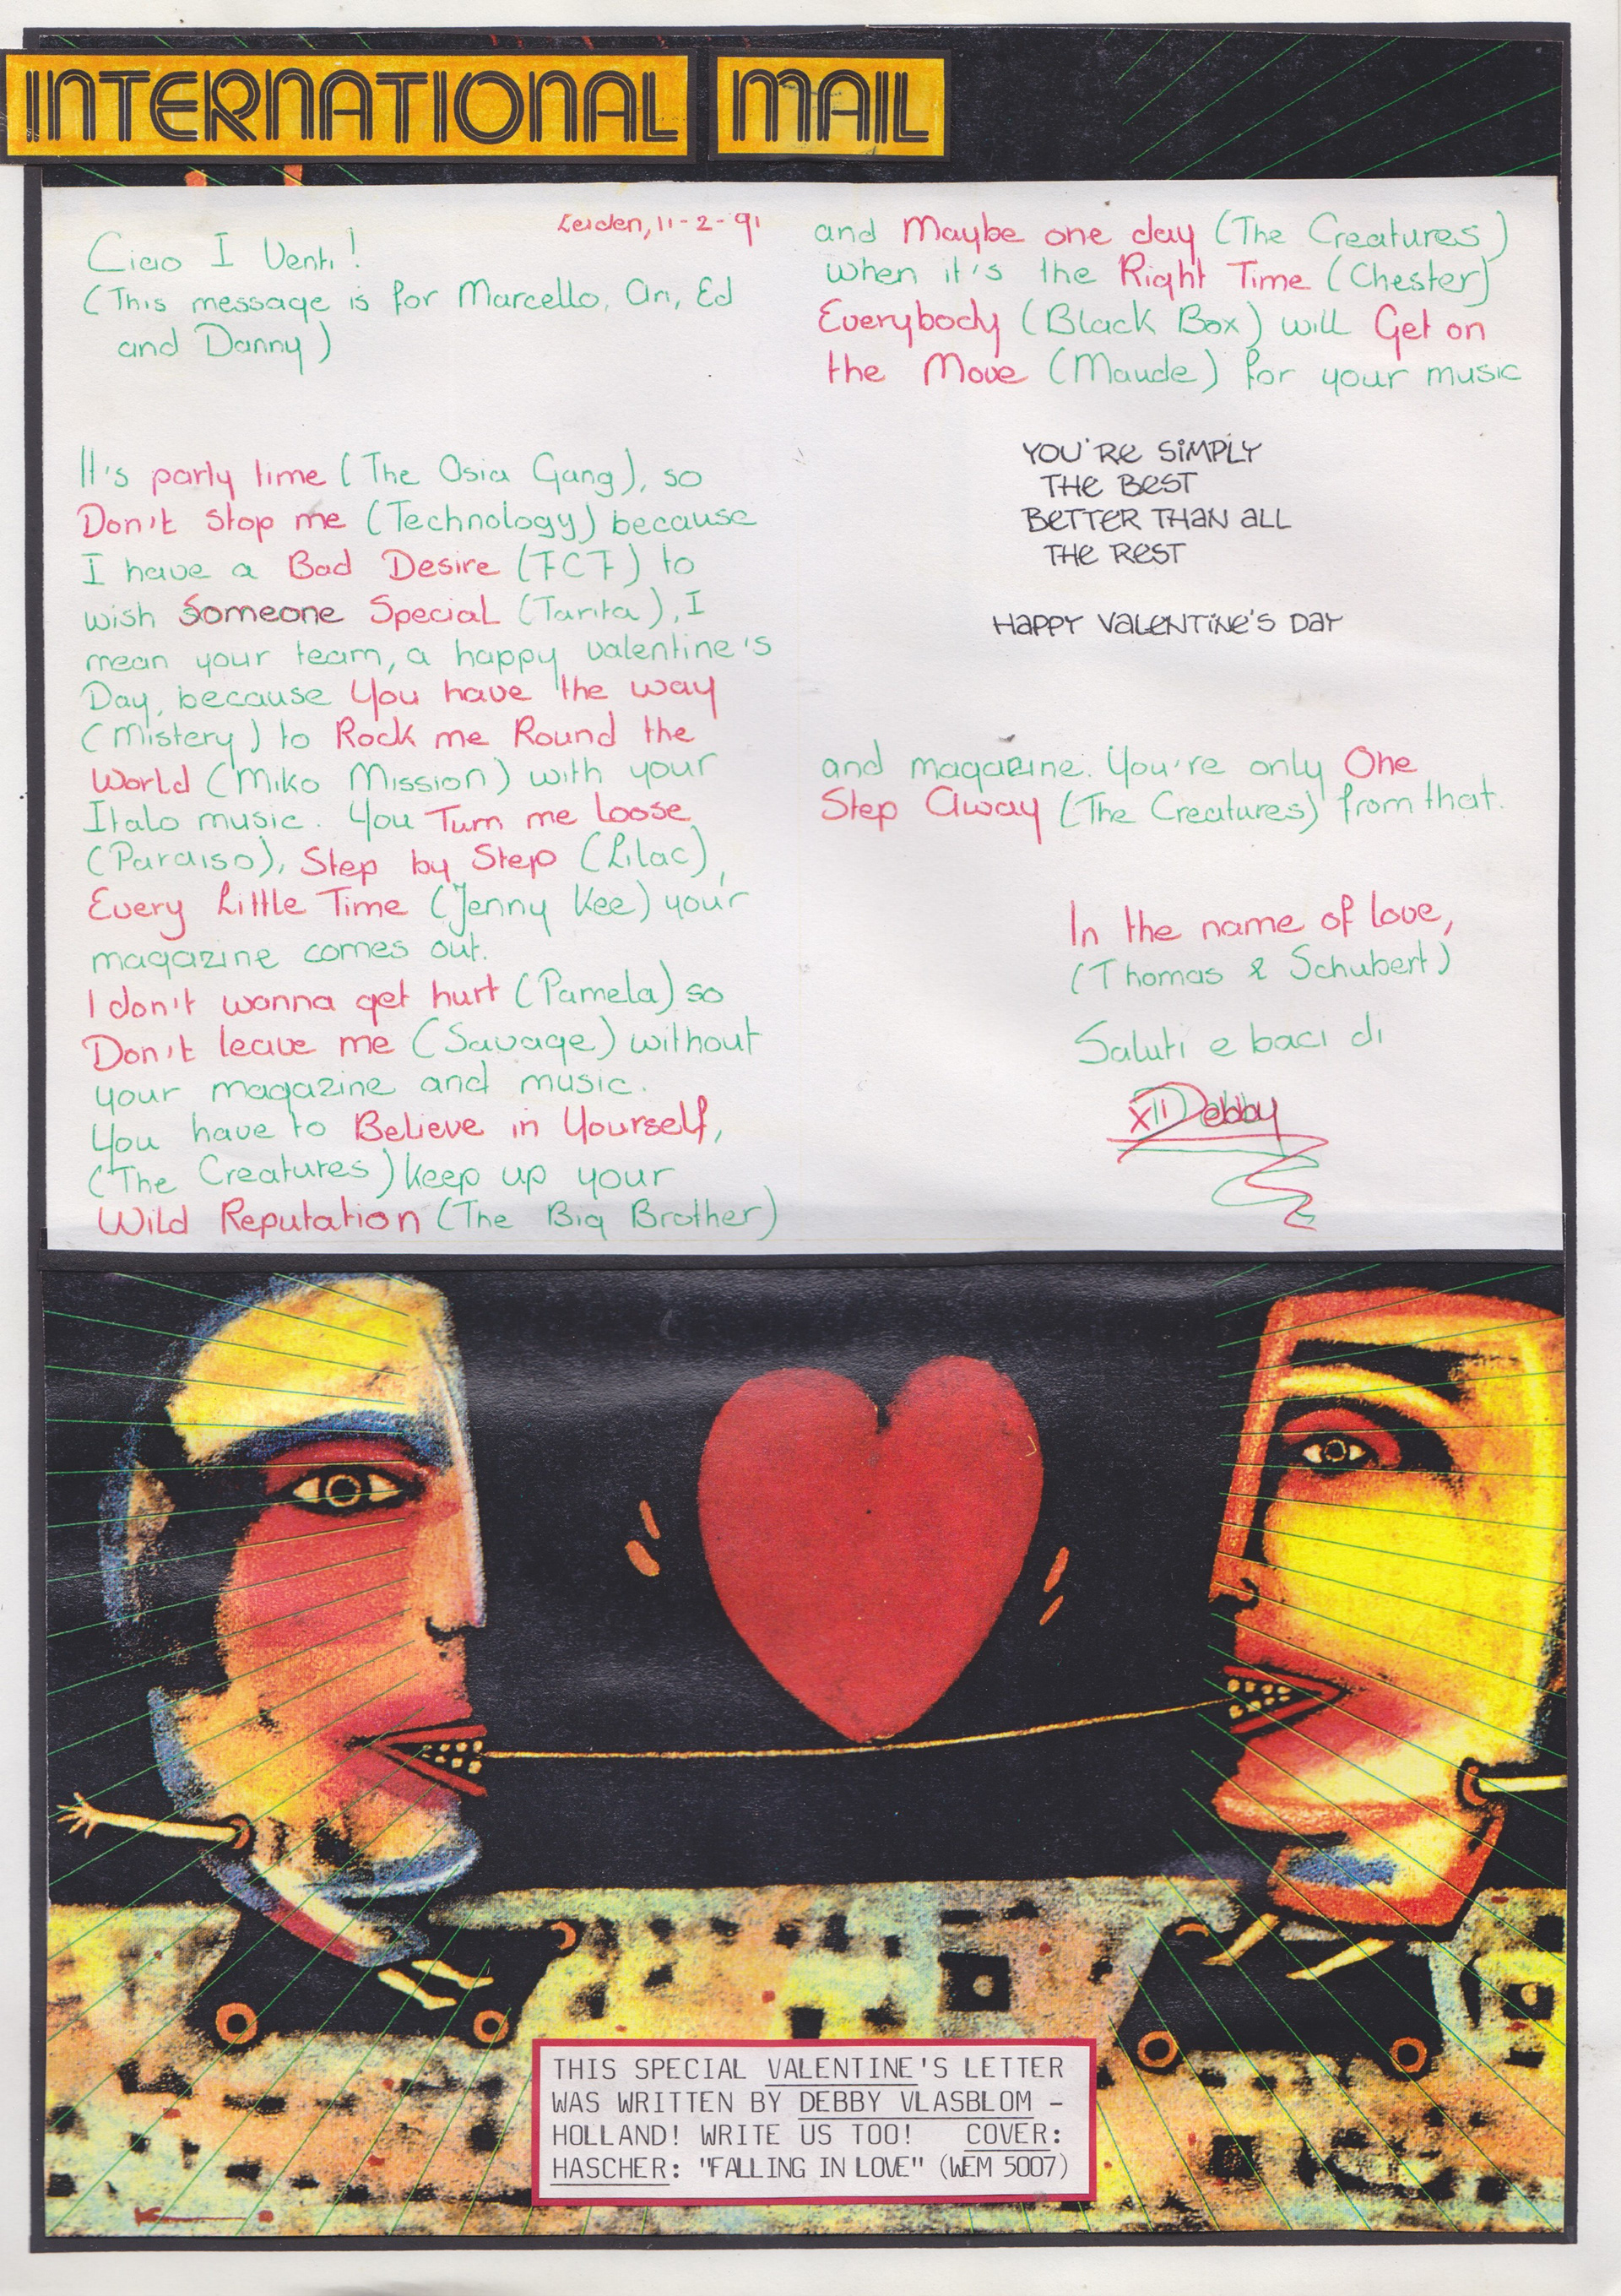 INTERNATIONAL MAIL
Leiden, 11-2-91
Ciao I Venti!
(This message is for Marcello, Ari, Ed
and Danny)
It's party time (The Asia Gang), so
Don't stop me (Technology) because
I have a Bad Desire (FCF) to
wish Someone Special (Tarita), I
mean your team, a happy valentine's
Day, because You have the way
(Mistery) to Rock me Round the
World (Miko Mission) with your
Italo music. You Turn me loose
(Paraiso), Step by Step (Lilac),
Every Little Time (Jenny Kee) your
magazine comes out.
I don't wanna get hurt (Pamela) so
Don't leave me (Savage) without
your magazine and music.
You have to Believe in Yourself,
(The Creatures) keep up your
Wild Reputation (The Big Brother)
and Maybe one day (The Creatures)
when it's the Right Time (Chester)
Everybody (Black Box) will Get on
the Move (Maude) for your music
YOU'RE SIMPLY
THE BEST
BETTER THAN ALL
THE REST
HAPPY VALENTINE'S DAY
and magazine. You're only One
Step Away (The Creatures) from that.
In the name of love,
(Thomas & Schubert)
Saluti e baci di
Debby
THIS SPECIAL VALENTINE'S LETTER
WAS WRITTEN BY DEBBY VLASBLOM -
HOLLAND! WRITE US TOO! COVER:
HASCHER: "FALLING IN LOVE" (WEM 5007)